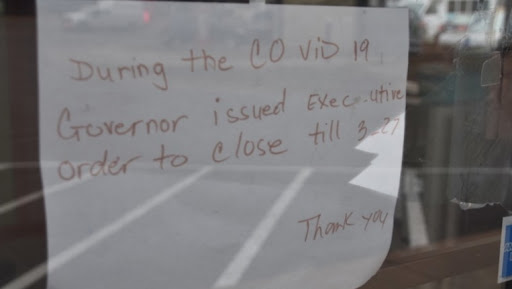 During the COViD 19
Governor issued Executive
order to close till 3-27
Thank you